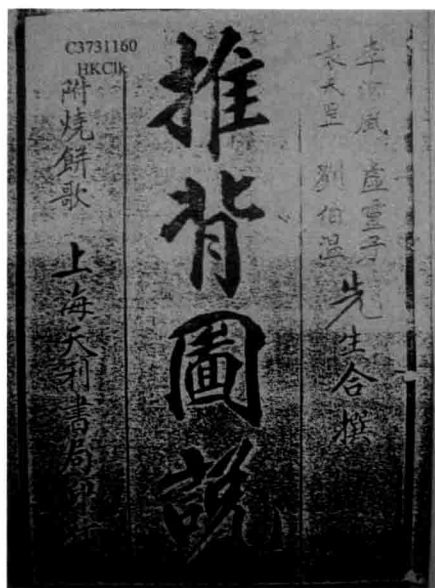 C3731160
HKClk
李淳風 虛靈子
袁天罡 劉伯溫
先生合撰
推背圖說
附燒餅歌 上海天利書局印